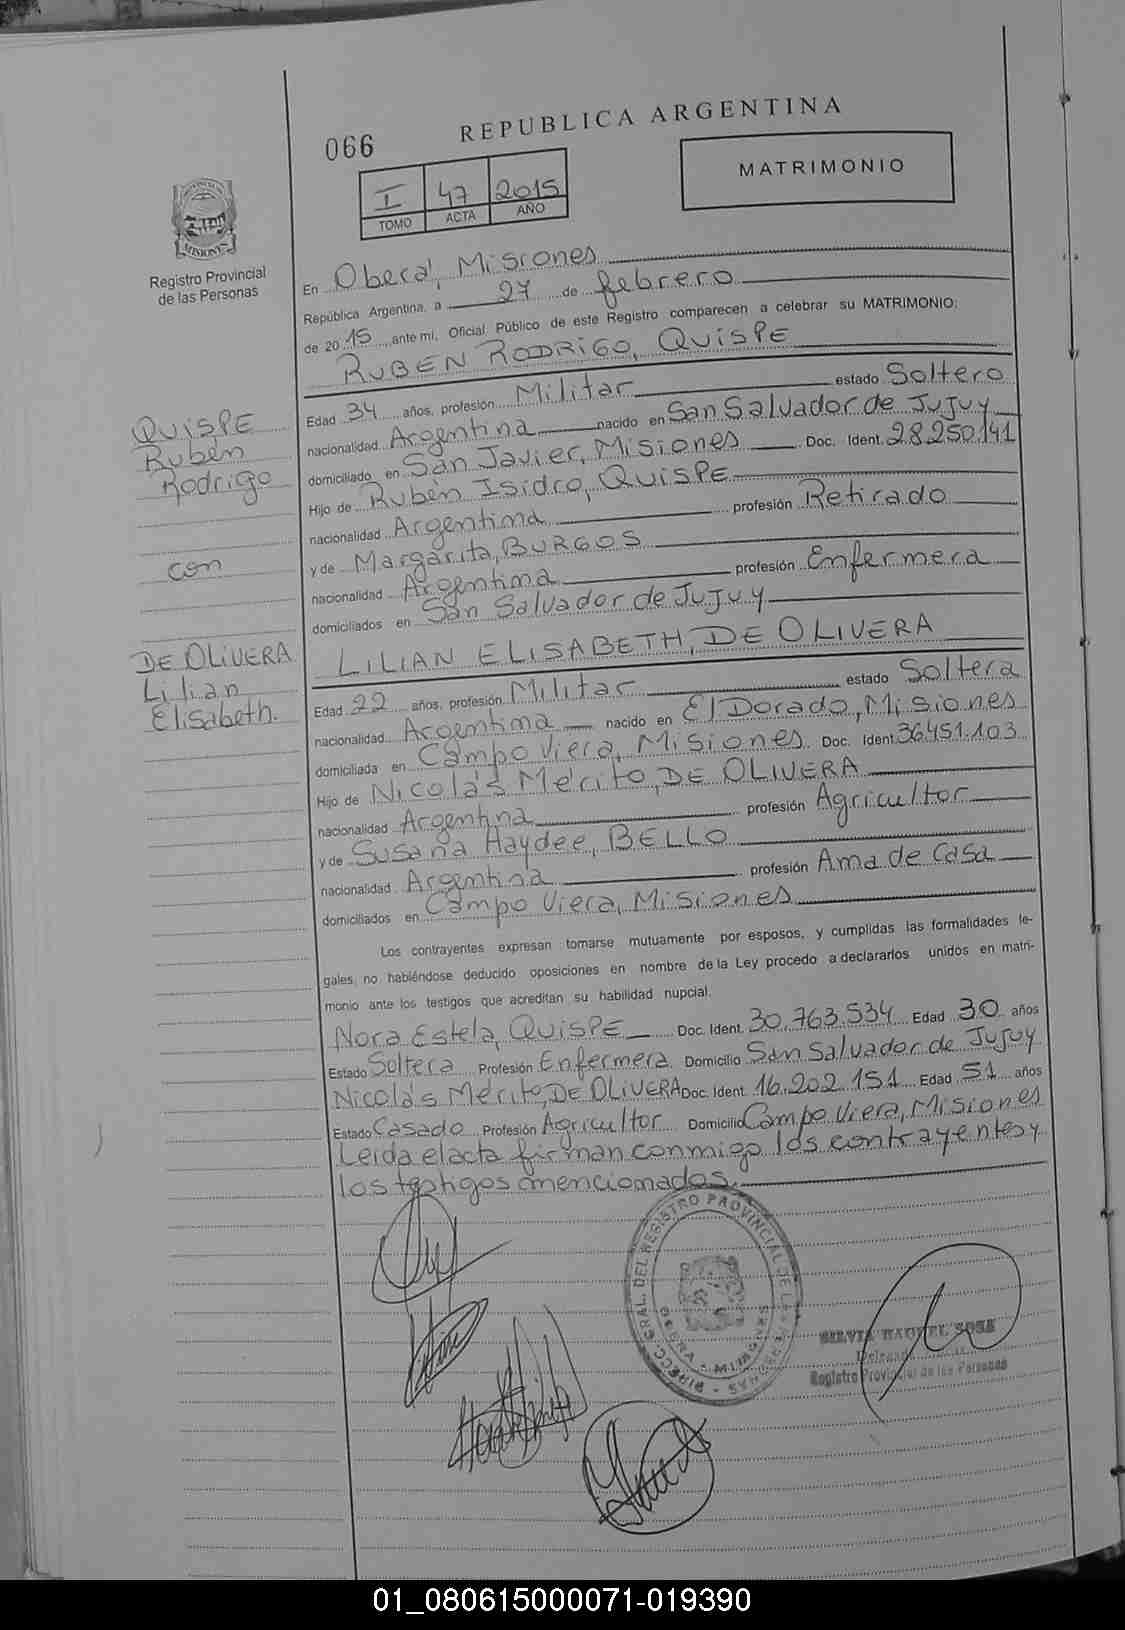 REPUBLICA ARGENTINA
066
MATRIMONIO
I 47 2015
TOMO ACTA AÑO
MISIONES
Registro Provincial
de las Personas
En Oberá, Misiones
República Argentina, a 27 de febrero
de 2015, ante mi, Oficial Público de este Registro comparecen a celebrar su MATRIMONIO:
RUBEN RODRIGO, QUISPE
Edad 34 años, profesión Militar estado Soltero
nacionalidad Argentina nacido en San Salvador de Jujuy
domiciliado en San Javier, Misiones Doc. Ident. 28.250.141
Hijo de Rubén Isidro, QUISPE
nacionalidad Argentina profesión Retirado
y de Margarita, BURGOS
nacionalidad Argentina profesión Enfermera
domiciliados en San Salvador de Jujuy
QUISPE
Rubén
Rodrigo
con
DE OLIVERA
Lilian
Elisabeth.
LILIAN ELISABETH, DE OLIVERA
Edad 22 años, profesión Militar estado Soltera
nacionalidad Argentina nacido en El Dorado, Misiones
domiciliada en Campo Viera, Misiones Doc. Ident. 36.451.103
Hijo de Nicolás Mérito, DE OLIVERA
nacionalidad Argentina profesión Agricultor
y de Susana Haydee, BELLO
nacionalidad Argentina profesión Ama de Casa
domiciliados en Campo Viera, Misiones
Los contrayentes expresan tomarse mutuamente por esposos, y cumplidas las formalidades le-
gales, no habiéndose deducido oposiciones en nombre de la Ley procedo a declararlos unidos en matri-
monio ante los testigos que acreditan su habilidad nupcial.
Nora Estela, QUISPE Doc. Ident. 30.763.534 Edad 30 años
Estado Soltera Profesión Enfermera Domicilio San Salvador de Jujuy
Nicolás Mérito, DE OLIVERA Doc. Ident. 16.202.151 Edad 51 años
Estado Casado Profesión Agricultor Domicilio Campo Viera, Misiones
Leida el acta firman conmigo los contrayentes y
los testigos mencionados.
DIRECC. GRAL. DEL REGISTRO PROVINCIAL DE LAS PERSONAS
OBERA - MISIONES
SILVIA RAQUEL SOSA
Registro Provincial de las Personas
01_080615000071-019390